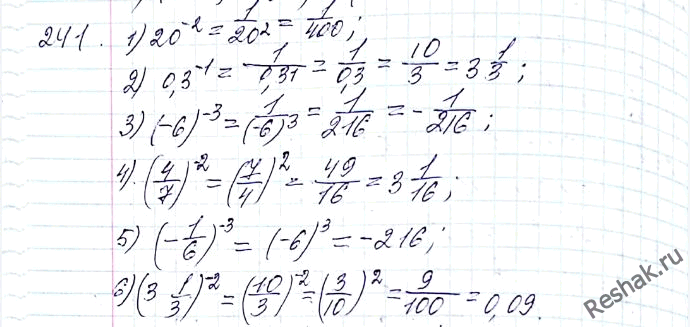 241. 1) 20^{-2} = 1/20^2 = 1/400;
2) 0,3^{-1} = 1/0,3^1 = 1/0,3 = 10/3 = 3 1/3;
3) (-6)^{-3} = 1/(-6)^3 = 1/216 = -1/216;
4) (4/7)^{-2} = (7/4)^2 = 49/16 = 3 1/16;
5) (-1/6)^{-3} = (-6)^3 = -216;
6) (3 1/3)^{-2} = (10/3)^{-2} = (3/10)^2 = 9/100 = 0,09.
Reshak.ru